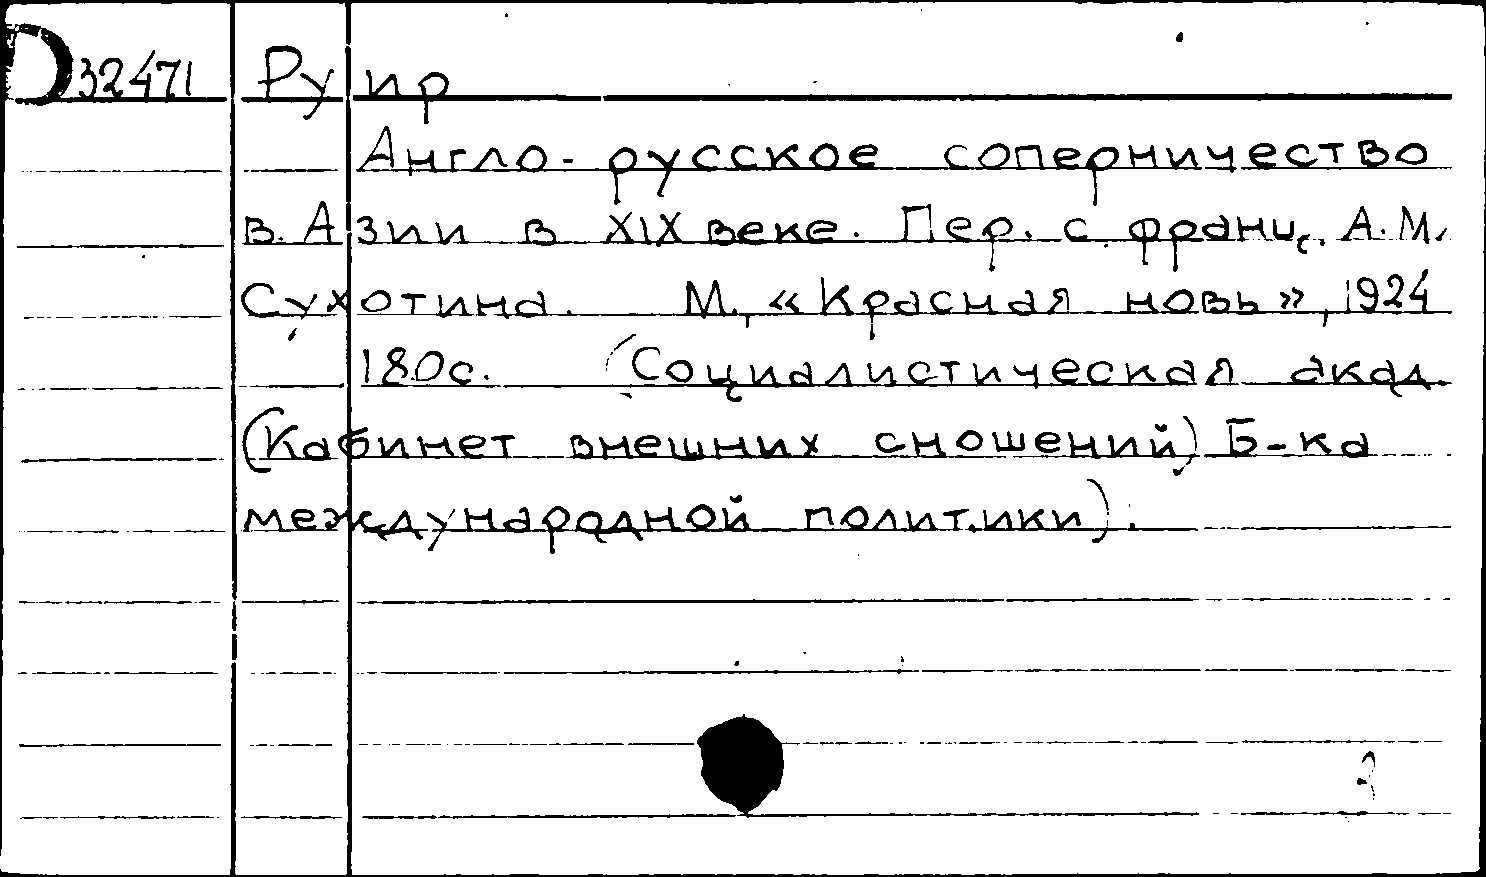 D32471 Руир
Англо-русское соперничество
в. Азии в XIX веке. Пер. с франц. А.М.
Сухотина. М., «Красная новь», 1924
180с. (Социалистическая акад.
(Кабинет внешних сношений) Б-ка
международной политики).
3